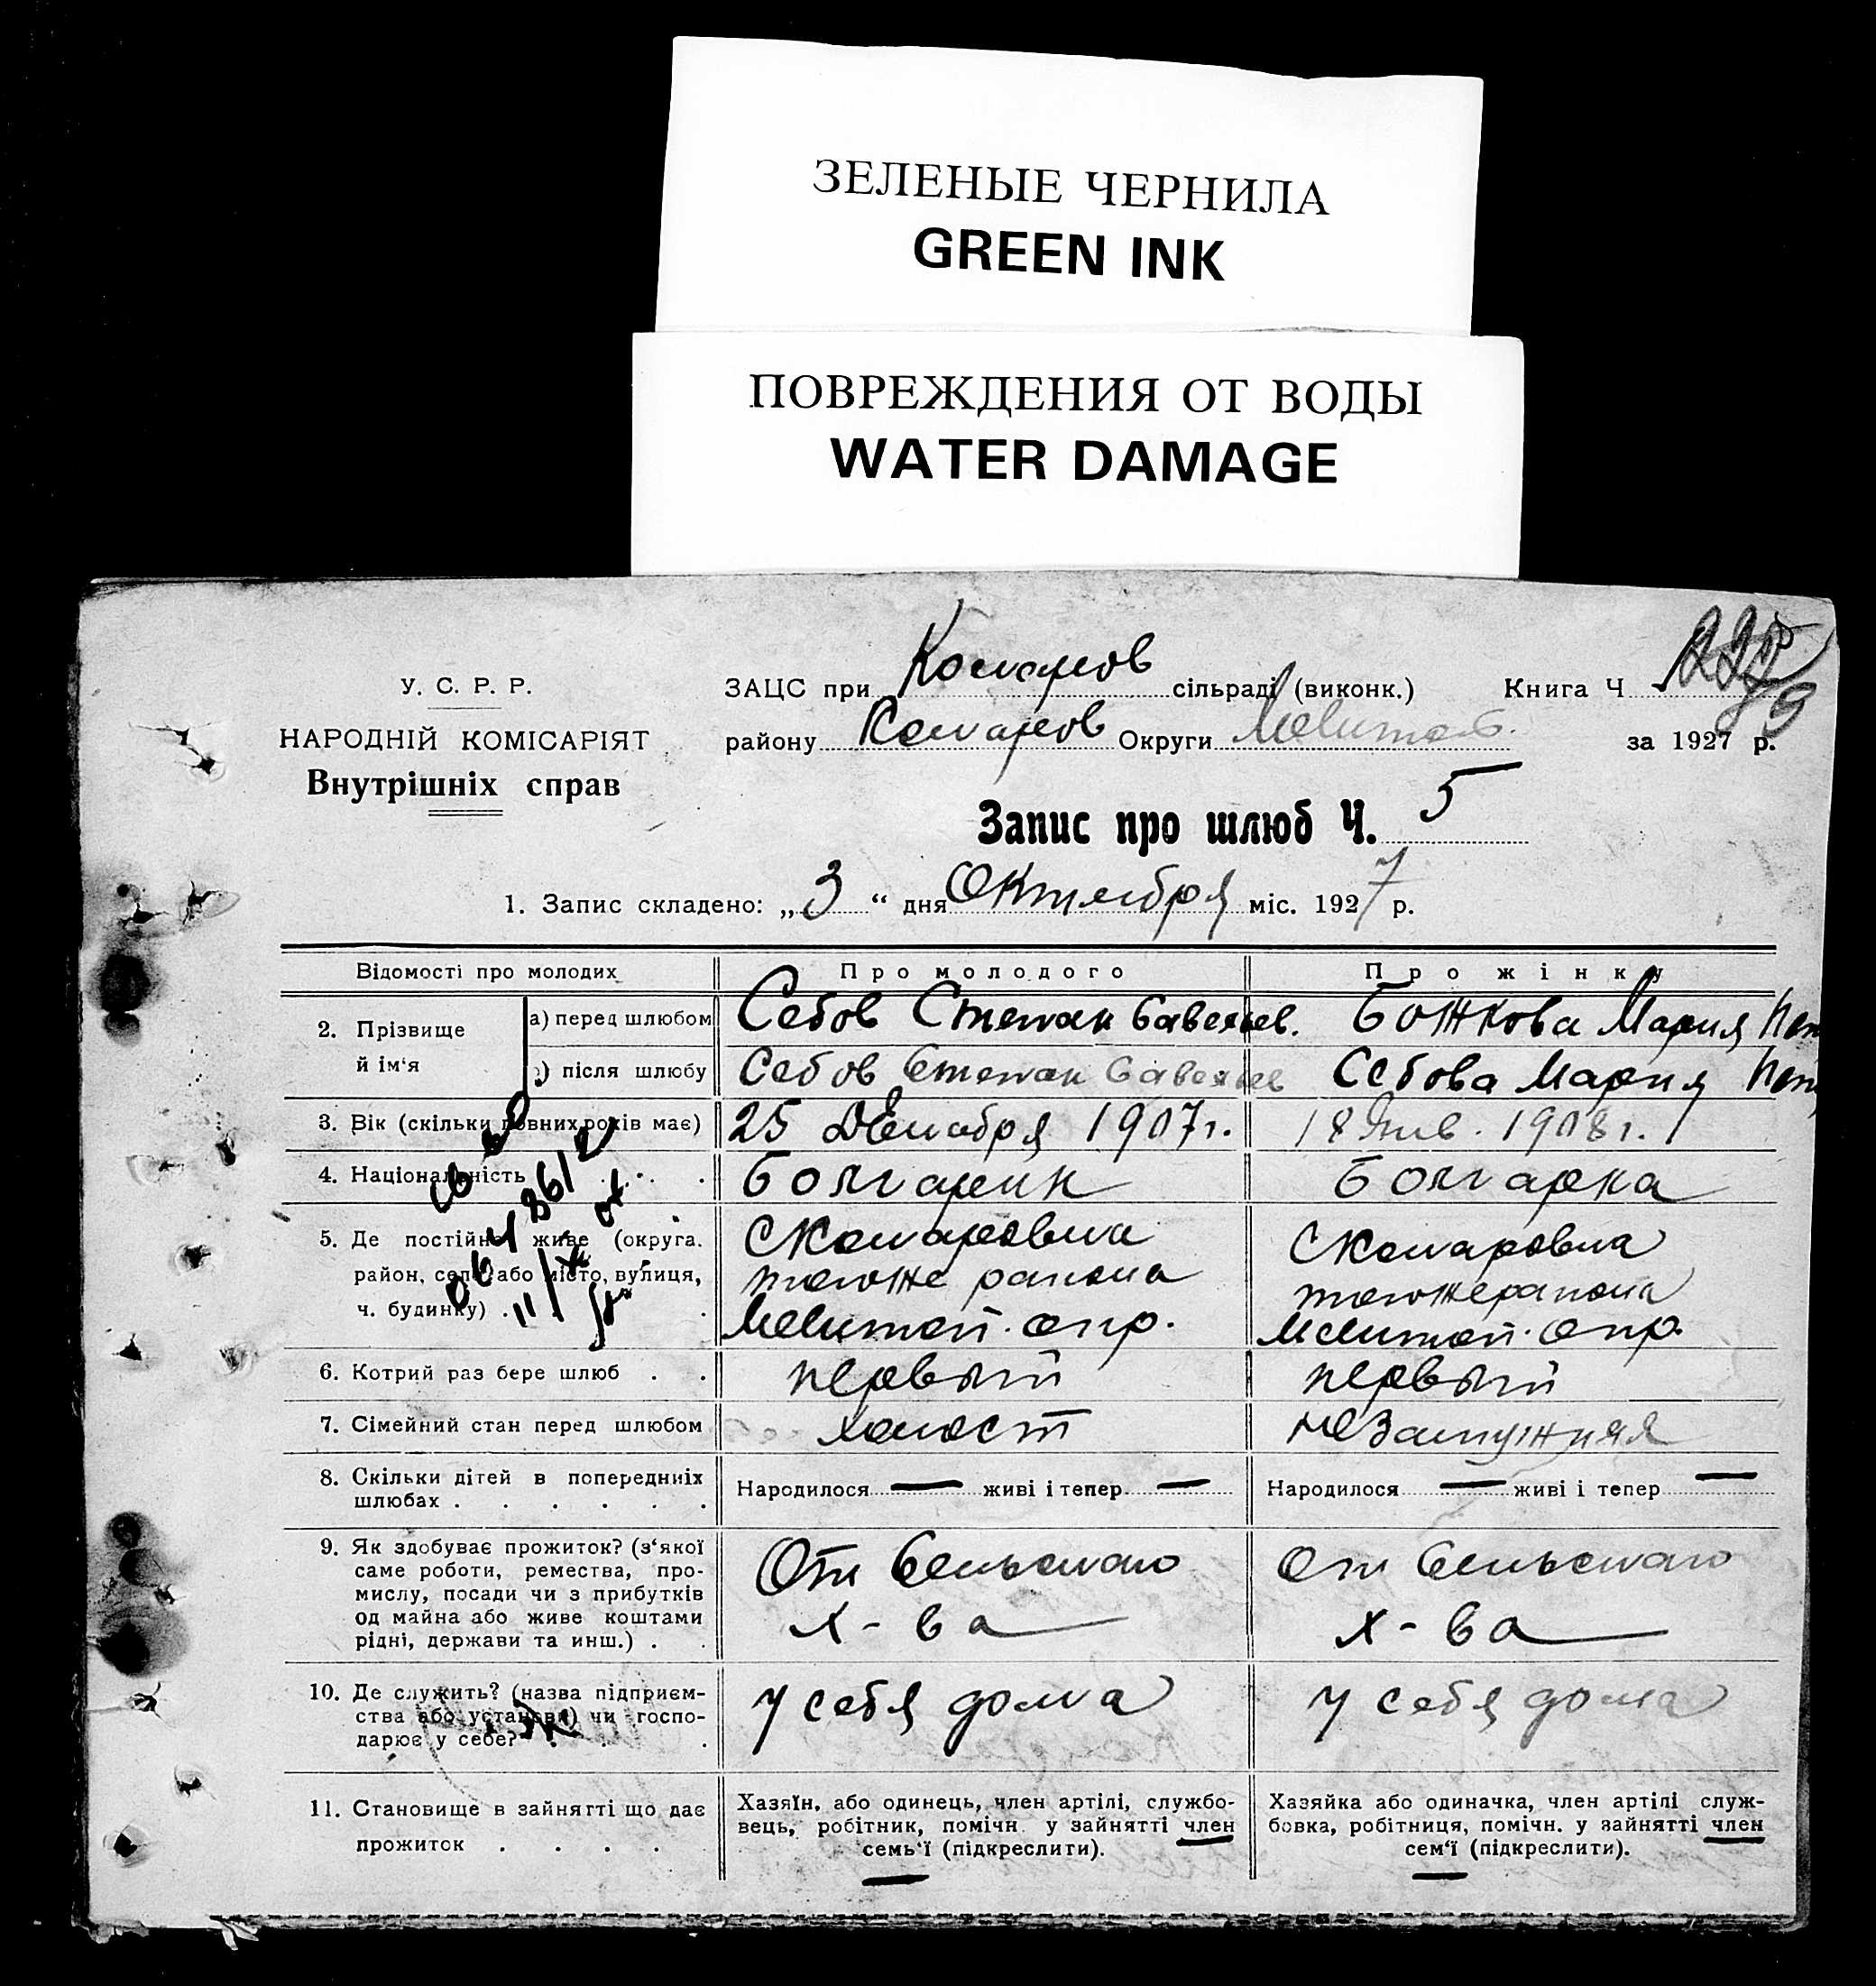 ЗЕЛЕНЫЕ ЧЕРНИЛА
GREEN INK
ПОВРЕЖДЕНИЯ ОТ ВОДЫ
WATER DAMAGE
У. С. Р. Р.
НАРОДНІЙ КОМІСАРІЯТ
Внутрішніх справ
ЗАЦС при Комаров сільраді (виконк.) Книга Ч
району Комаров Округи Мелитоп. за 1927 р.
Запис про шлюб Ч. 5
1. Запис складено: „3“ дня Октября міс. 1927 р.
Відомості про молодих Про молодого Про жінку
2. Прізвище й ім‘я
а) перед шлюбом Себов Степан Савельев. Божкова Мария
після шлюбу Себов Степан Савельев Себова Мария
3. Вік (скільки повних років має) 25 Декабря 1907 г. 18 Янв. 1908 г.
4. Національність Болгарин Болгарка
5. Де постійно живе (округа. район, село або місто, вулиця, ч. будинку)
С Комаровка
тогоже района
Мелитоп. окр.
С Комаровка
тогоже района
Мелитоп. окр.
6. Котрий раз бере шлюб первый первый
7. Сімейний стан перед шлюбом холост незамужняя
8. Скільки дітей в попередниіх
шлюбах
Народилося — живі і тепер —
Народилося — живі і тепер —
9. Як здобуває прожиток? (з‘якої
саме роботи, ремества, про-
мислу, посади чи з прибутків
од майна або живе коштами
рідні, держави та инш.)
От сельского
х-ва
От сельского
х-ва
10. Де служить? (назва підприєм-
ства або установи) чи госпо-
дарює у себе?
у себя дома
у себя дома
11. Становище в зайнятті що дає
прожиток
Хазяїн, або одинець, член артілі, службо-
вець, робітник, помічн. у зайнятті член
семь‘ї (підкреслити).
Хазяйка або одиначка, член артілі служ-
бовка, робітниця, помічн. у зайнятті член
сем‘ї (підкреслити).